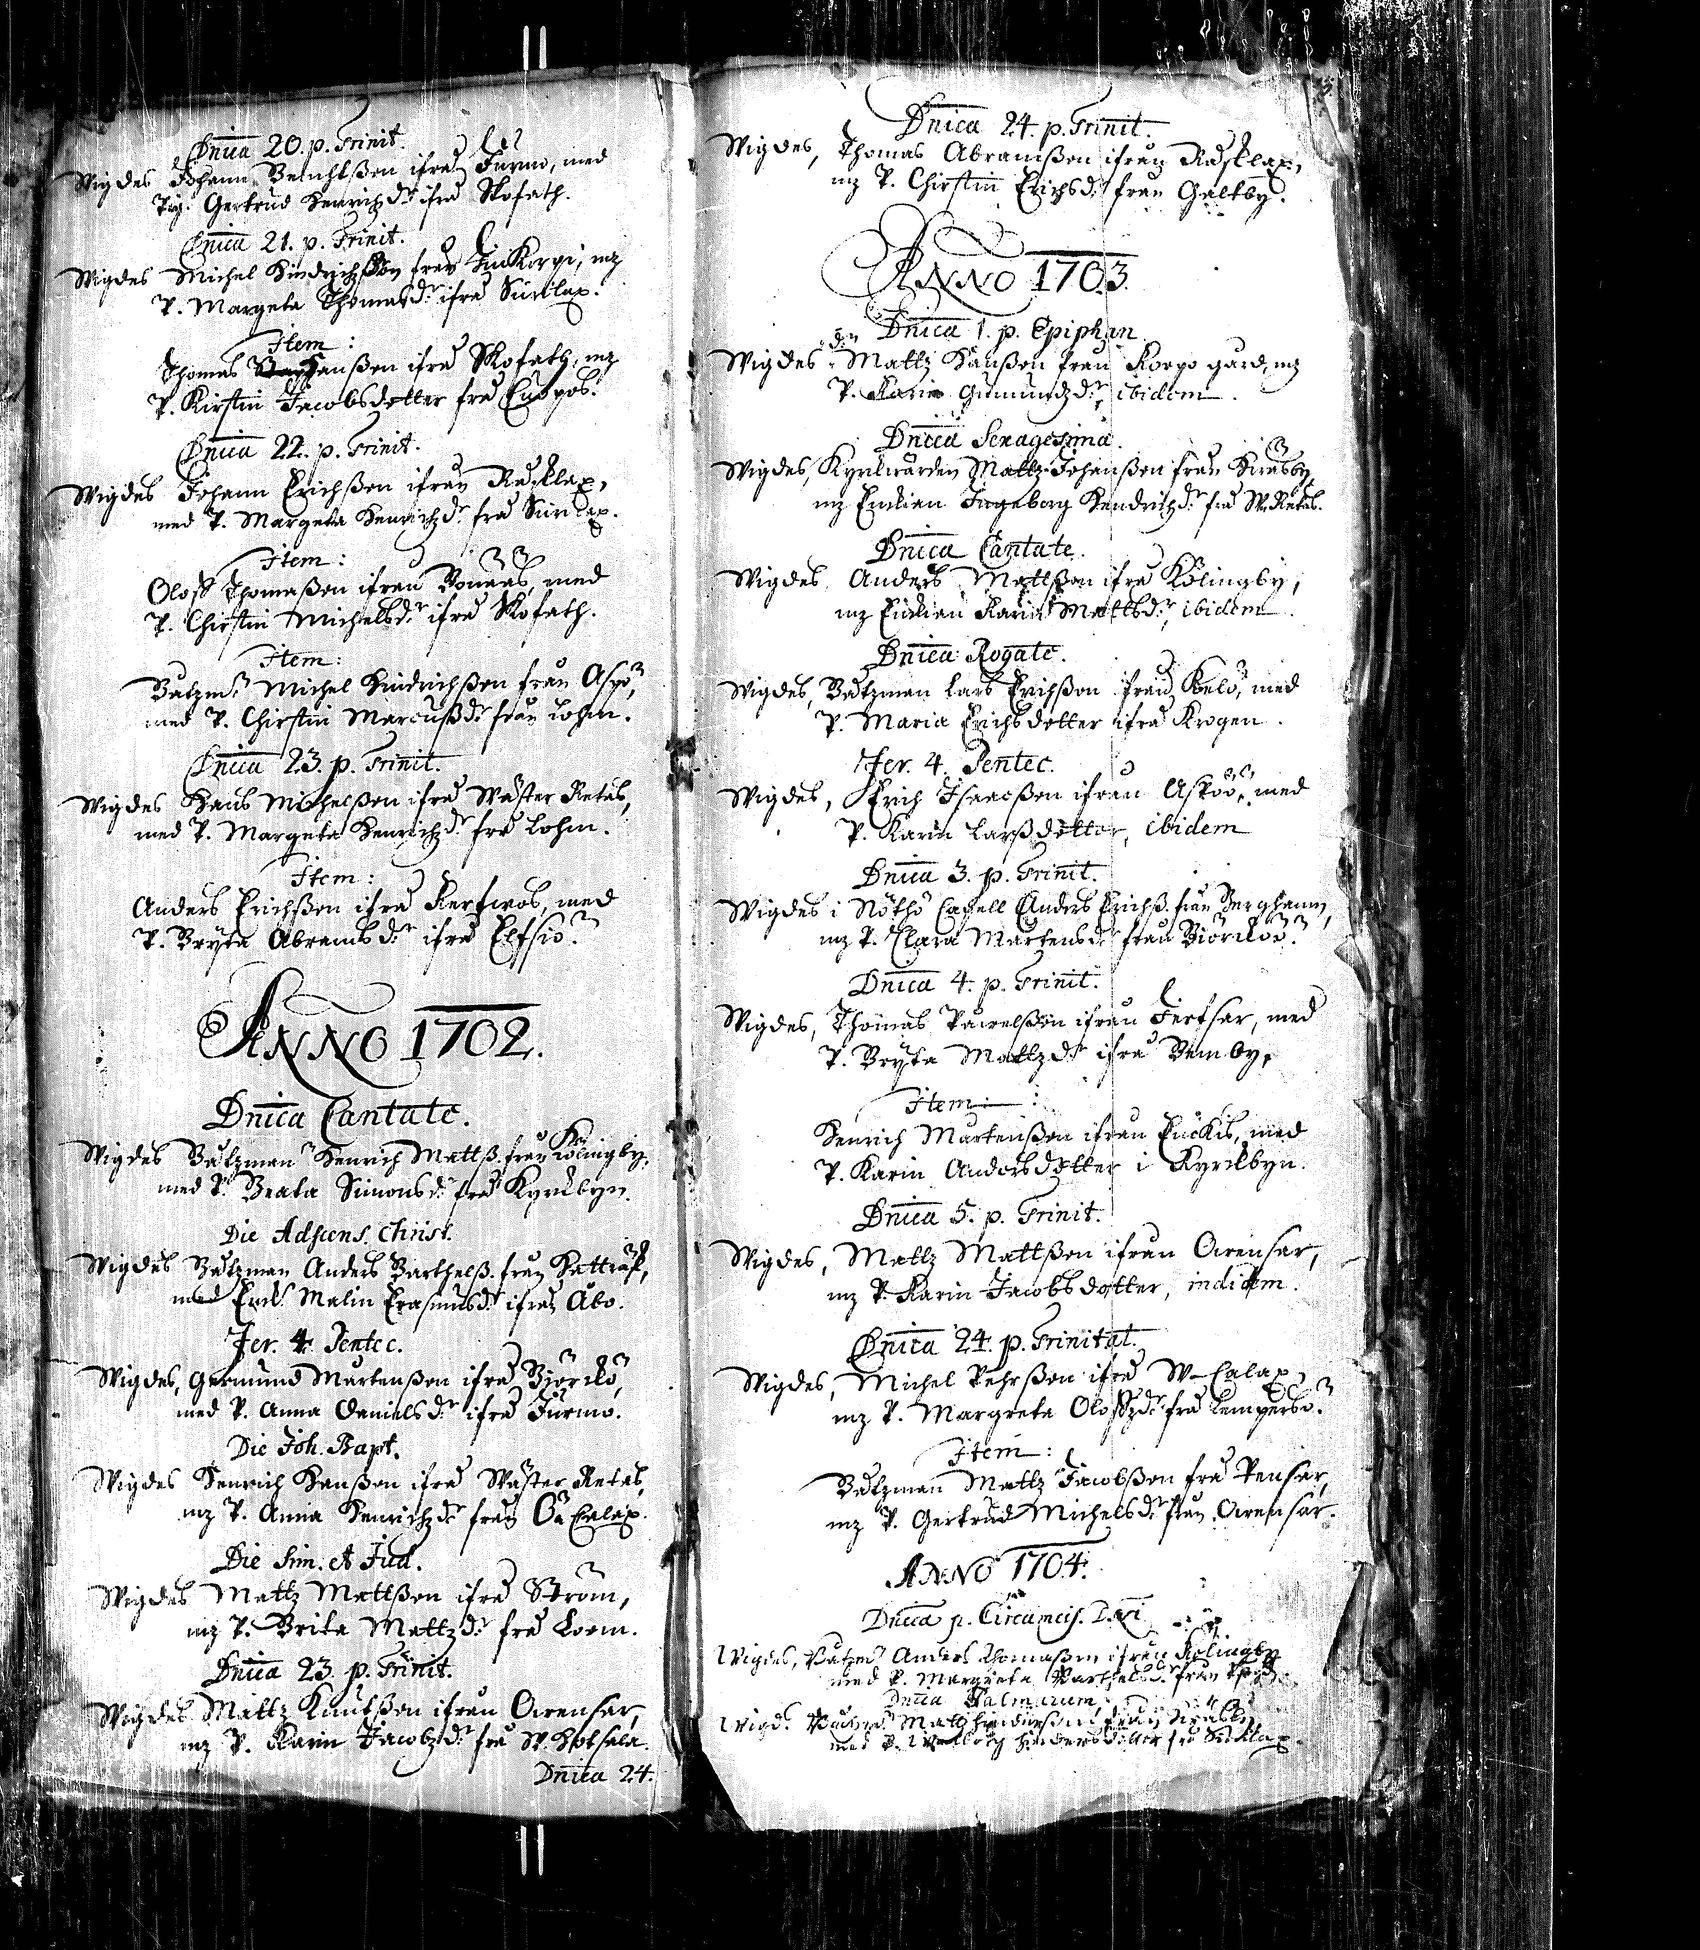 Dnica 20. p. Trinit.
Wigdes Johann Benghtßon ifrå Furmo, med
Pig. Gertrud Henrichz dr ifrå Skofath.
Dnica 21. p. Trinit.
Wigdes Michel Hindrichßon från Finkorpi, mz
P. Margeta Thomasdr ifrå Sundlax.
Item:
Thomas Hanßon ifrå Skofath, mz
P. Kirstin Jacobsdotter frå
Dnica 22. p. Trinit.
Wigdes Johann Erichßon ifrån Rasklax,
med P. Margeta Henrichz dr frå
Item:
Oloff Thomaßon ifrån Bonääs, med
P. Chirstin Michelsdr ifrå Skofath.
Item:
Båtzm. Michel Hindrichßon från Aspö,
med P. Chirstin Marcußdr från Lohm.
Dnica 23. p. Trinit.
Wigdes Hans Michelßon ifrå Wäster Retais,
med P. Margeta Henrichz dr frå Lohm.
Item:
Anders Erichßon ifrå med
P. Bryta Abrams dr ifrå Elfsiö.
ANNO 1702.
Dnica Cantate.
Wigdes Båtzman Henrich Mattß. från Kölingby,
med P. Beata Simonsdr frå Kyrkbyn.
Die Adscens. Christ.
Wigdes Båtzman Anders Barthelß. från
med Malin Erasmusdr ifrån Åbo.
Fer. 4. Pentec.
Wigdes, Germund Mårtenßon ifrå Björkö,
med P. Anna Danielsdr ifrå Furmo.
Die Joh. Bapt.
Wigdes Henrich Hanßon ifrå Wäster Retais,
mz P. Anna Henrichz dr från Calax.
Die Sim. et Jud.
Wigdes Mattz Mattßon ifrå Ström,
mz P. Brita Mattz dr frå Loem.
Dnica 23. p. Trinit.
Wigdes Mattz Knutßon ifrån Orensar,
mz P. Karin Jacobz dr frå W.
Dnica 24.
Dnica 24. p. Trinit.
Wigdes, Thomas Abramßon ifrån Rasklax,
mz P. Chirstin Erichsdr från Galtby.
ANNO 1703.
Dnica 1. p. Epiphan.
Wigdes Mattz Hanßon från Korpo gård, mz
P. Karin Gumundz dr, ibidem.
Dnica Sexagesima.
Wigdes, Kyrkwärden Mattz Johanßon från
mz Enkian Ingeborg Hendrichz dr frå W. Retais.
Dnica Cantate.
Wigdes Anders Mattßon ifrå Kölingby,
mz Enkian Karin Mattsdr, ibidem.
Dnica Rogate.
Wigdes, Båtzman Lars Erichßon från Kelö, med
P. Maria Erichsdotter ifrå Krogen.
Fer. 4. Pentec.
Wigdes, Erich Isaacßon ifrån Aspöö, med
P. Karin Larßdotter, ibidem
Dnica 3. p. Trinit.
Wigdes i Nöthö Capell Anders Erichß. från Berghamn,
mz P. Clara Mårtensdr från Björköö.
Dnica 4. p. Trinit.
Wigdes, Thomas Pawelßon ifrån med
P. Bryta Mattz dr ifrå
Item:
Henrich Mårtenßon ifrån med
P. Karin Andersdotter i Kyrkbyn.
Dnica 5. p. Trinit.
Wigdes, Mattz Mattßon ifrån Orensar,
mz P. Karin Jacobsdotter, indidem.
Dnica 24. p. Trinitat.
Wigdes, Michel Pehrßon ifrå W-Calax,
mz P. Margreta Oloffz dr frå Lempersö.
Item:
Båtzman Mattz Jacobßon frå Pensar,
mz P. Gertrud Michelsdr från Orensar.
ANNO 1704.
Dnica p. Circumcis.
Wigdes, Båtzm. Anders Thomaßon ifrån Kölingby
med P. Margreta från
Dnica Palmarum
Wigd. Mattz från
med P.